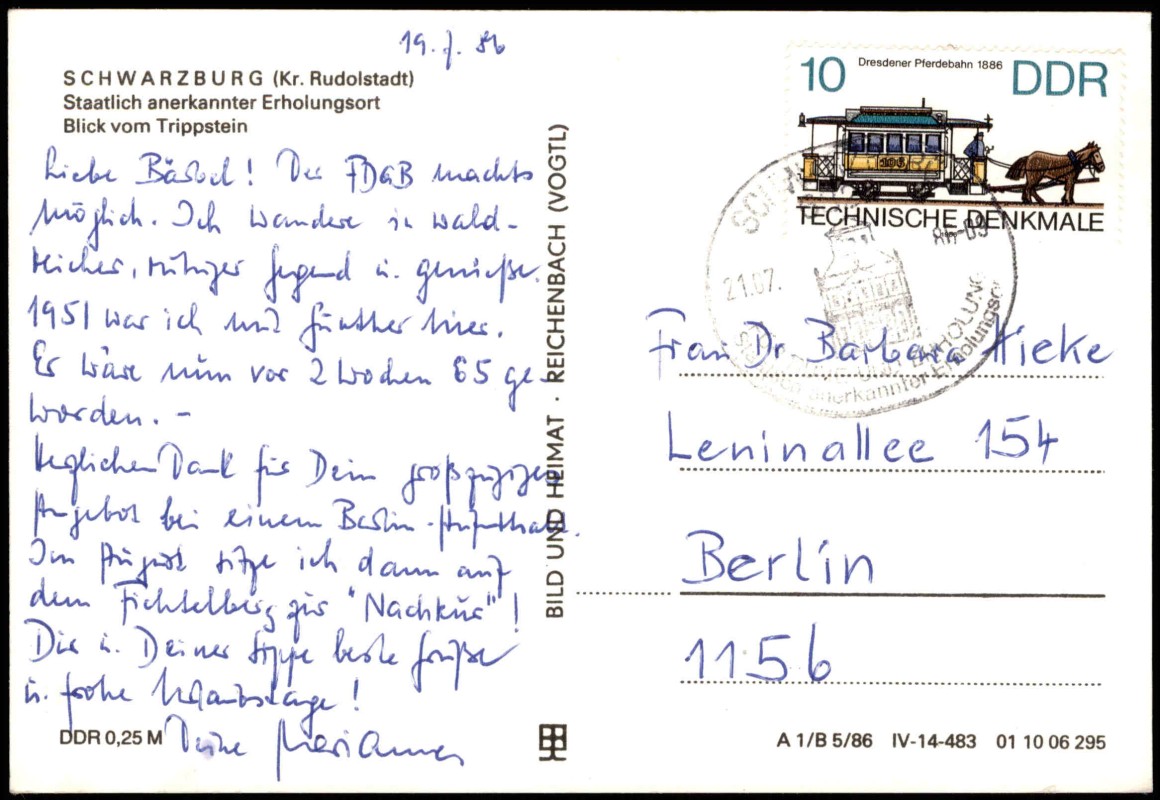 19.7.86
SCHWARZBURG (Kr. Rudolstadt)
Staatlich anerkannter Erholungsort
Blick vom Trippstein
Liebe Bärbel! Der FDGB machts
möglich. Ich wandere in wald-
reicher, ruhiger Gegend u. genieße.
1951 war ich mit Günther hier.
Er wäre nun vor 2 Wochen 65 ge-
worden. –
Herzlichen Dank für Dein großzügiges
Angebot bei einem Berlin-Aufenthalt.
Im August sitze ich dann auf
dem Fichtelberg zur "Nachkur"!
Dir u. Deiner Sippe beste Grüße
u. frohe Urlaubstage!
Deine Marianne
DDR 0,25 M
BILD UND HEIMAT · REICHENBACH (VOGTL)
10 Dresdener Pferdebahn 1886 DDR
106
TECHNISCHE DENKMALE
21.07.
anerkannter Erholungsort
Frau Dr. Barbara Hieke
Leninallee 154
Berlin
1156
A 1/B 5/86 IV-14-483 01 10 06 295